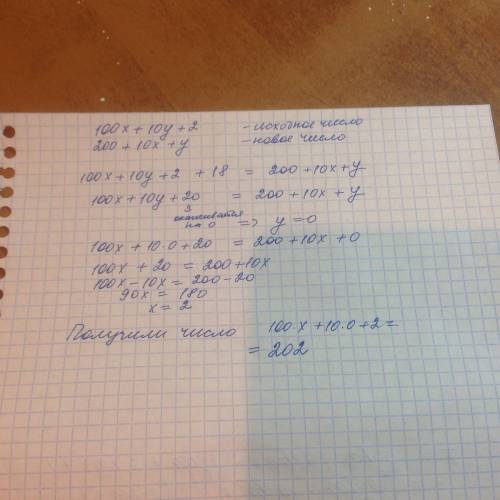 100x + 10y + 2 - исходное число
200 + 10x + y - новое число
100x + 10y + 2 + 18 = 200 + 10x + y
100x + 10y + 20 = 200 + 10x + y
оканчивается
на 0 => y = 0
100x + 10·0 + 20 = 200 + 10x + 0
100x + 20 = 200 + 10x
100x - 10x = 200 - 20
90x = 180
x = 2
Получили число 100·x + 10·0 + 2 =
= 202